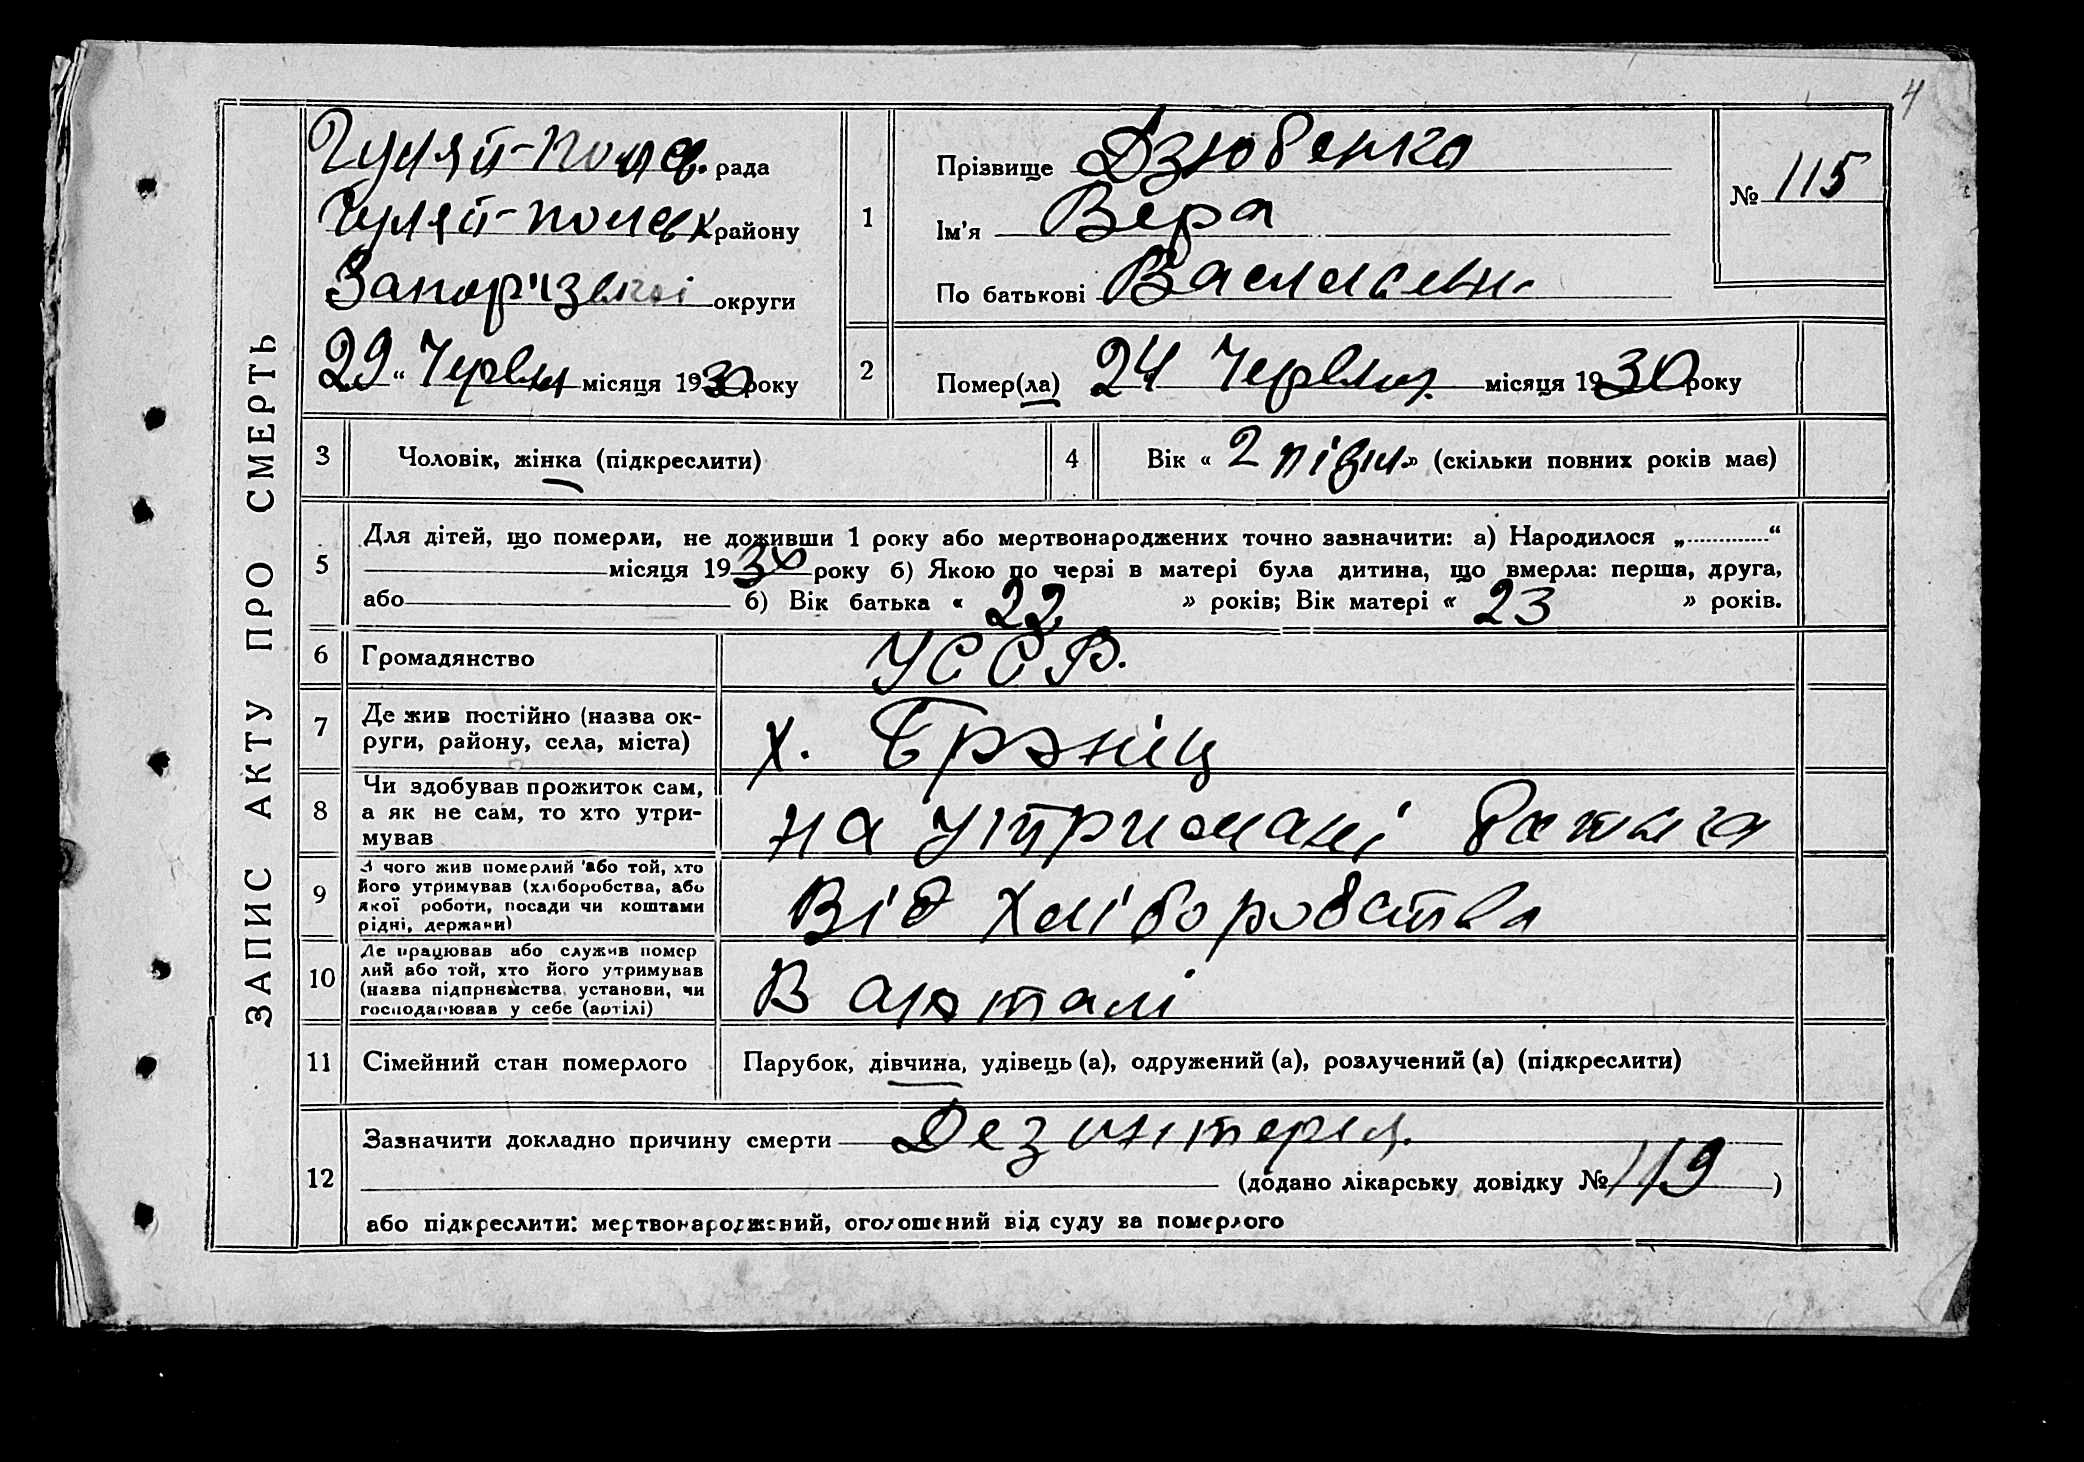 4
ЗАПИС АКТУ ПРО СМЕРТЬ
Гуляй-Полев. рада
Гуляй-Полев району
Запорізької округи
29 “ Червня місяця 1930 року
1
Прізвище Дзюбенко
Ім’я Вера
По батькові Василиевн.
№ 115
2
Помер(ла) 24 Червня місяця 1930 року
3
Чоловік, жінка (підкреслити)
4
Вік « 2 півн. » (скільки повних років має)
5
Для дітей, що померли, не доживши 1 року або мертвонароджених точно зазначити: а) Народилося „ “
місяця 1930 року б) Якою по черзі в матері була дитина, що вмерла: перша, друга,
або б) Вік батька « 22 » років; Вік матері « 23 » років.
6
Громадянство УССР.
7
Де жив постійно (назва ок-
руги, району, села, міста)
х.
8
Чи здобував прожиток сам,
а як не сам, то хто утри-
мував
на утримані батька
9
З чого жив померлий або той, хто
його утримував (хліборобства, або
якої роботи, посади чи коштами
рідні, держави)
Від Хліборобства
10
Де працював або служив помер
лий або той, хто його утримував
(назва підприємства, установи, чи
господарював у себе (артілі)
В артилі
11
Сімейний стан померлого
Парубок, дівчина, удівець (а), одружений (а), розлучений (а) (підкреслити)
12
Зазначити докладно причину смерти Дезинтерия.
(додано лікарську довідку № 119 )
або підкреслити: мертвонароджений, оголошений від суду за померлого